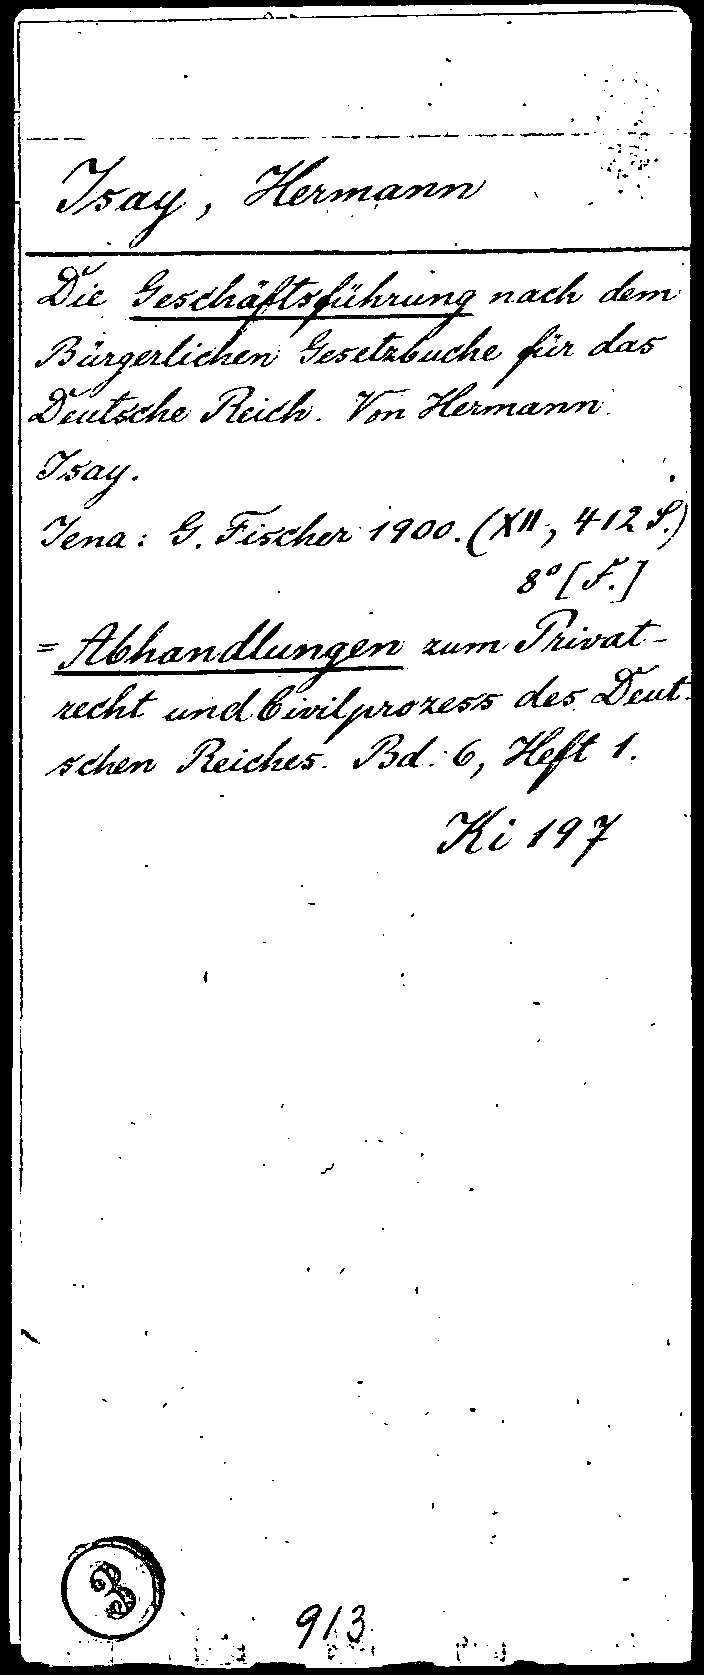 Isay, Hermann
Die Geschäftsführung nach dem
Bürgerlichen Gesetzbuche für das
Deutsche Reich. Von Hermann
Isay.
Jena: G. Fischer 1900. (XII, 412 S.)
8° [F.]
= Abhandlungen zum Privat-
recht und Civilprozess des Deut-
schen Reiches. Bd. 6, Heft 1.
Ki 197
3
913